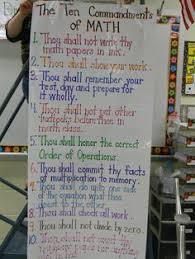 The Ten Commandments
of MATH
1. Thou shall not write thy
math papers in ink.
2. Thou shall show your work.
3. Thou shall remember your
test day and prepare for
it wholly.
4. Thou shall not put other
subjects before them in
math class.
5. Thou shall honor the correct
Order of Operations.
6. Thou shall commit thy facts
of multiplication to memory.
7. Thou shall do unto one
side of the equation what thou
doest to the other.
8. Thou shall check all work.
9. Thou shall not divide by zero.
10. Thou shall not